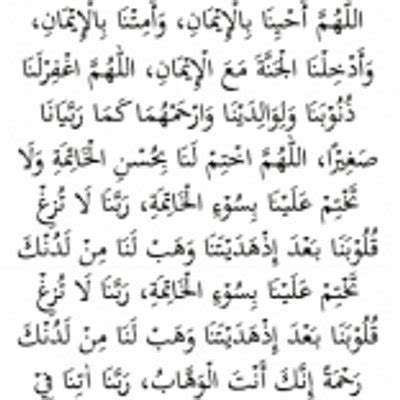 اللّٰهُمَّ أَحْيِنَا بِالْإِيْمَانِ، وَأَمِتْنَا بِالْإِيْمَانِ،
وَأَدْخِلْنَا الْجَنَّةَ مَعَ الْإِيْمَانِ، اللّٰهُمَّ اغْفِرْلَنَا
ذُنُوْبَنَا وَلِوَالِدَيْنَا وَارْحَمْهُمَا كَمَا رَبَّيَانَا
صَغِيْرًا، اللّٰهُمَّ اخْتِمْ لَنَا بِحُسْنِ الْخَاتِمَةِ وَلَا
تَخْتِمْ عَلَيْنَا بِسُوْءِ الْخَاتِمَةِ، رَبَّنَا لَا تُزِغْ
قُلُوْبَنَا بَعْدَ إِذْهَدَيْتَنَا وَهَبْ لَنَا مِنْ لَدُنْكَ
تَخْتِمْ عَلَيْنَا بِسُوْءِ الْخَاتِمَةِ، رَبَّنَا لَا تُزِغْ
قُلُوْبَنَا بَعْدَ إِذْهَدَيْتَنَا وَهَبْ لَنَا مِنْ لَدُنْكَ
رَحْمَةً إِنَّكَ أَنْتَ الْوَهَّابُ، رَبَّنَا اٰتِنَا فِيْ